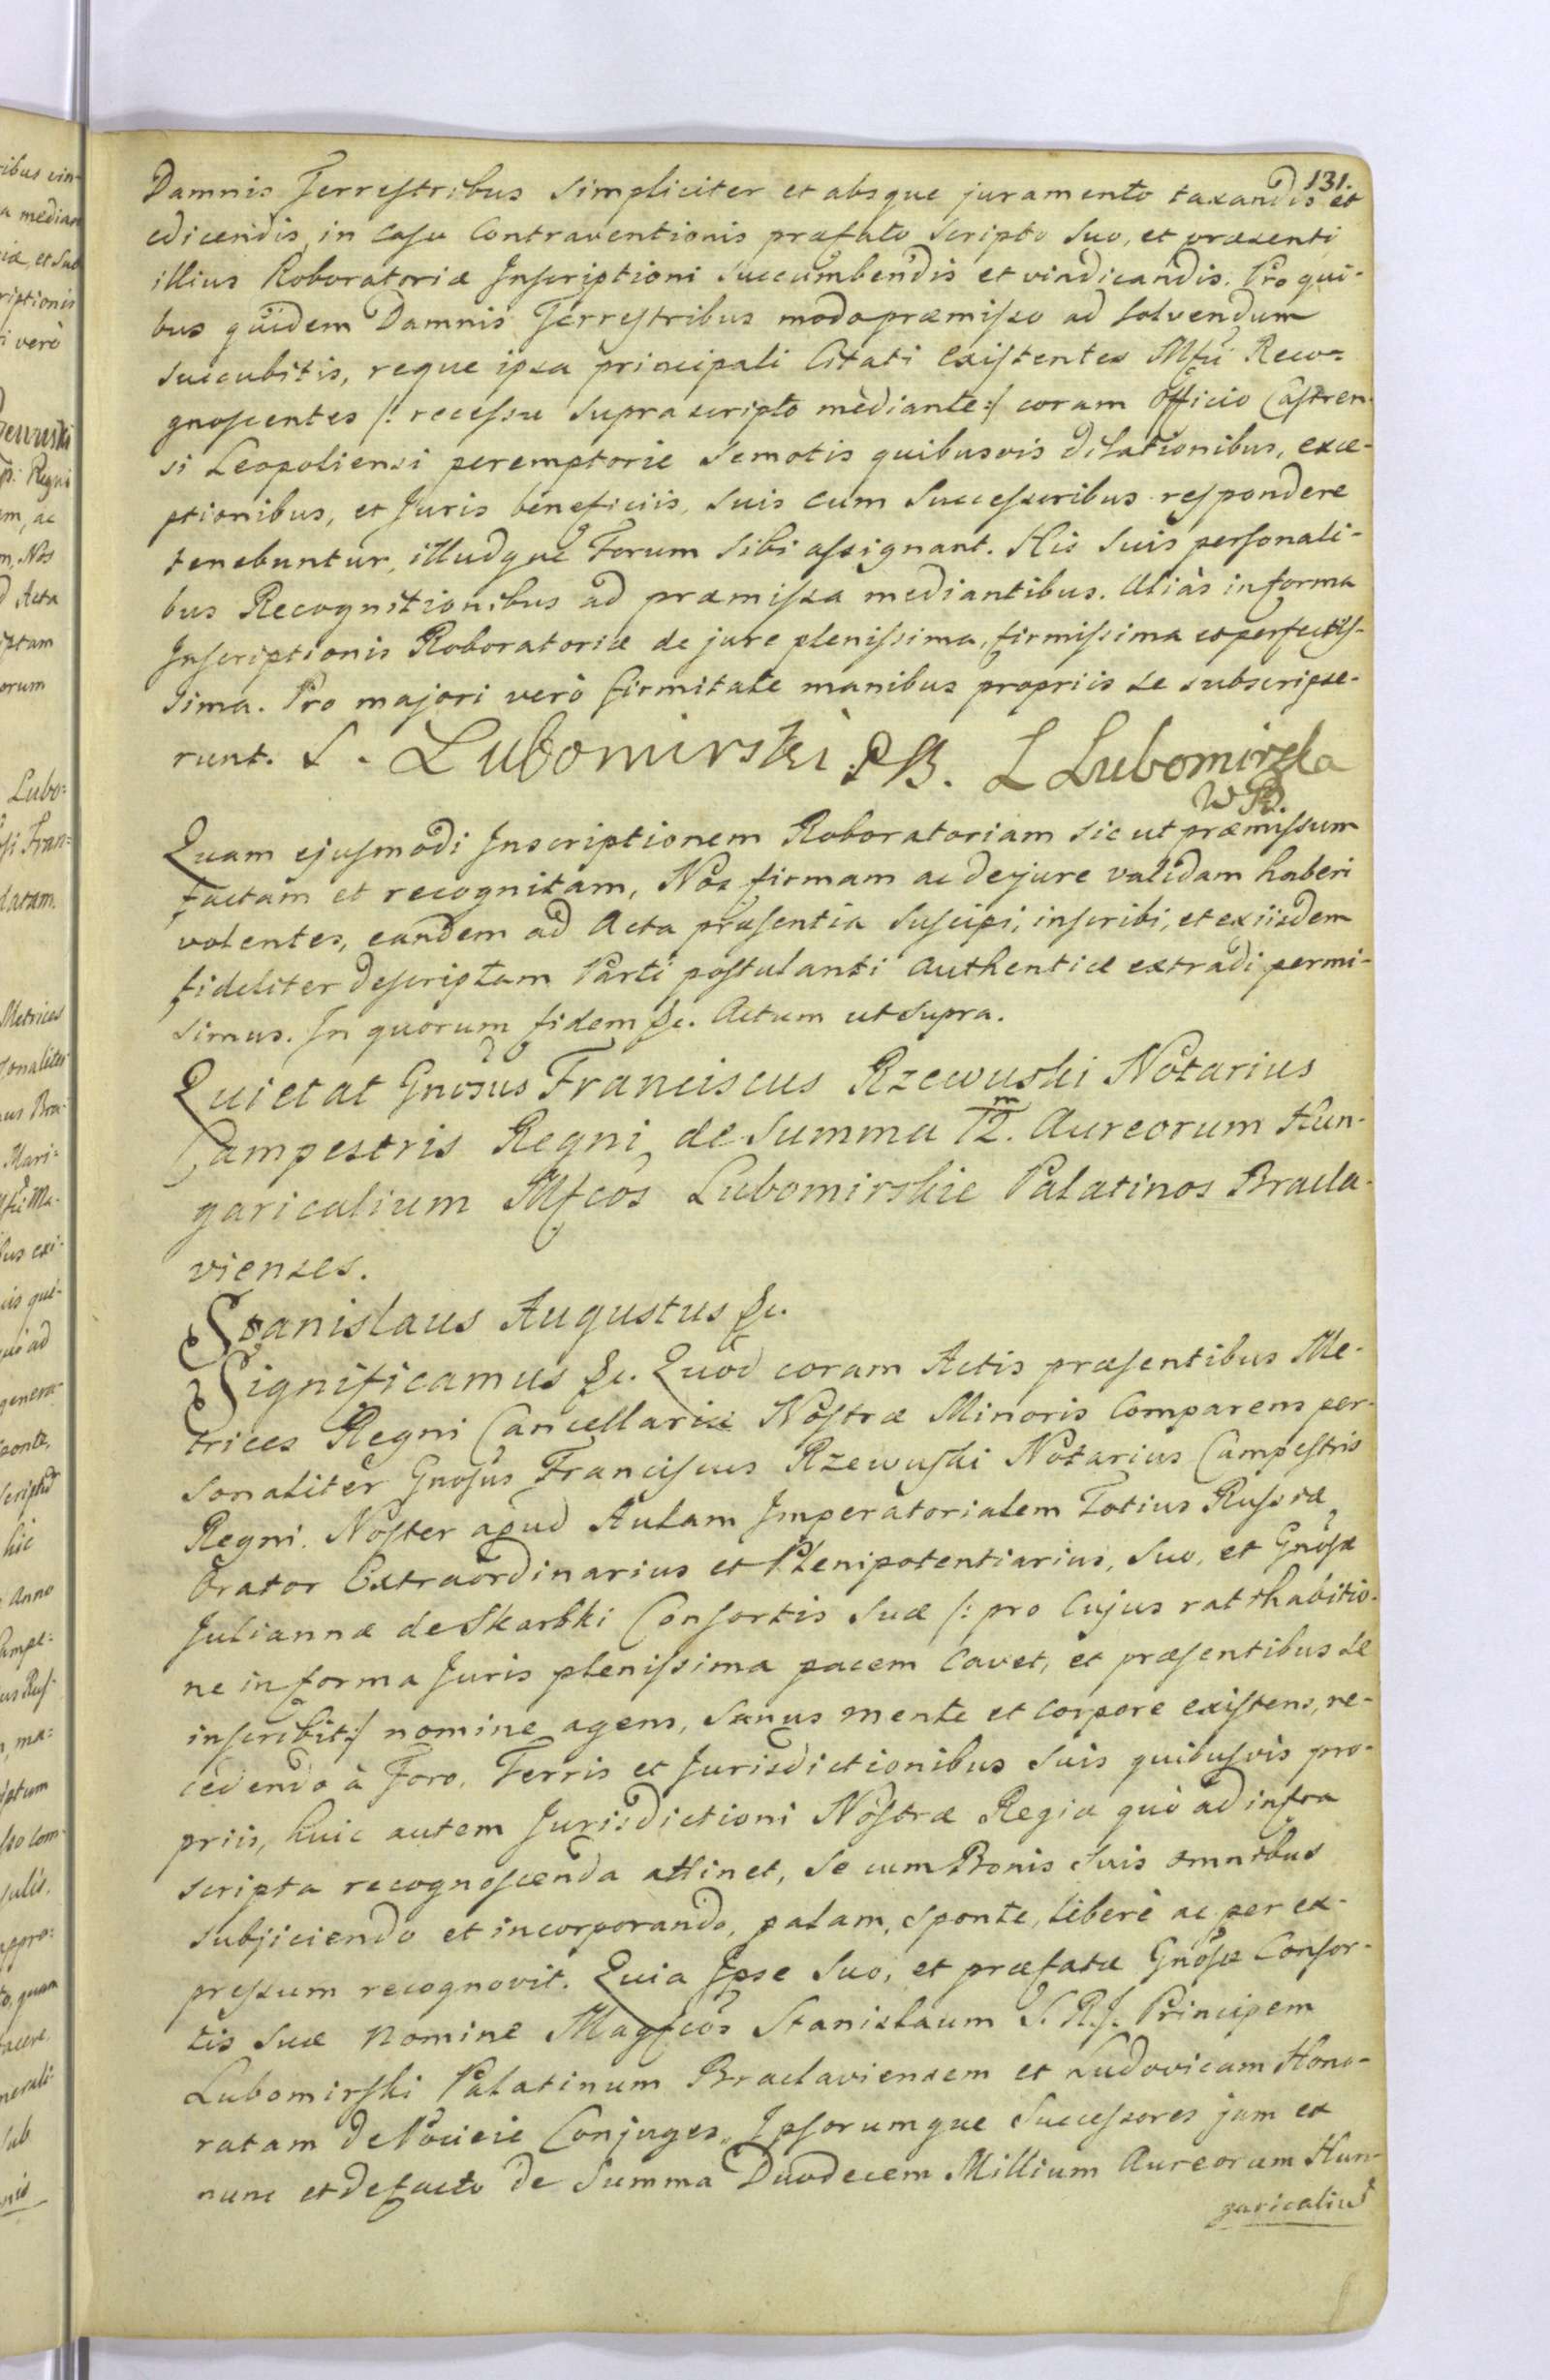 131.
Damnis Terrestribus simpliciter et absque juramento taxandis et
edicendis in casu Contraventionis præfato Scripto Suo, et præsenti
illius Roboratoriæ Inscriptioni succumbendis et vindicandis. Pro qui-
bus quidem Damnis Terrestribus modopræmisso ad solvendum
succubitis, reque ipsa principali Citati existentes Mfci Reco-
gnoscentes /: recessu suprascripto mediante :/ coram Officio Castren-
si Leopoliensi peremptorie semotis quibusvis dilationibus, exce-
ptionibus, et Juris beneficiis, suis cum Successoribus respondere
tenebuntur, illudque Forum sibi assignant. His suis personali-
bus Recognitionibus ad præmissa mediantibus. Aliàs in forma
Inscriptionis Roboratoriæ de jure plenissima, firmissima et perfectis-
sima. Pro majori verò firmitate manibus propriis se subscripse-
runt. S. Lubomirski PB. L Lubomirska
WB.
Quam ejusmodi Inscriptionem Roboratoriam sic ut præmissum
factam et recognitam, Nos firmam ac dejure validam haberi
volentes, eandem ad Acta præsentia suscipi, inscribi, et ex iisdem
fideliter descriptam Parti postulanti authenticè extradi permi-
simus. In quorum fidem &c. Actum ut supra.
Quietat Gnosus Franciscus Rzewuski Notarius
Campestris Regni de Summa 12.m Aureorum Hun-
garicalium Mfcos Lubomirskie Palatinos Bracla-
vienses.
Stanislaus Augustus &c.
Significamus &c. Quod coram Actis præsentibus Me-
trices Regni Cancellariæ Nostræ Minoris Comparens per-
sonaliter Gnosus Franciscus Rzewuski Notarius Campestris
Regni. Noster apud Aulam Imperatorialem Totius Russiæ
Orator Extraordinarius et Plenipotentiarius, suo, et Gnosæ
Juliannæ de Skarbki Consortis suæ /: pro cujus ratihabitio-
ne in forma Juris plenissima pacem cavet, et præsentibus se
inscribit :/ nomine agens, sanus mente et corpore existens, re-
cedendo à Foro, Terris et Jurisdictionibus suis quibusvis pro-
priis, huic autem Jurisdictioni Nostræ Regiæ quò ad infra
scripta recognoscenda attinet, se cum Bonis suis omnibus
subjiciendo et incorporando, palam, sponte, liberè ac per ex-
pressum recognovit. Quia Ipse suo, et præfatæ Gnosæ Consor-
tis suæ nomine Magfcos Stanislaum S.R.J. Principem
Lubomirski Palatinum Braclaviensem et Ludovicam Hono-
ratam de Pocieie Conjuges, Ipsorumque Successores jam ex
nunc et defacto de Summa Duodecem Millium Aureorum Hun-
garicaliu